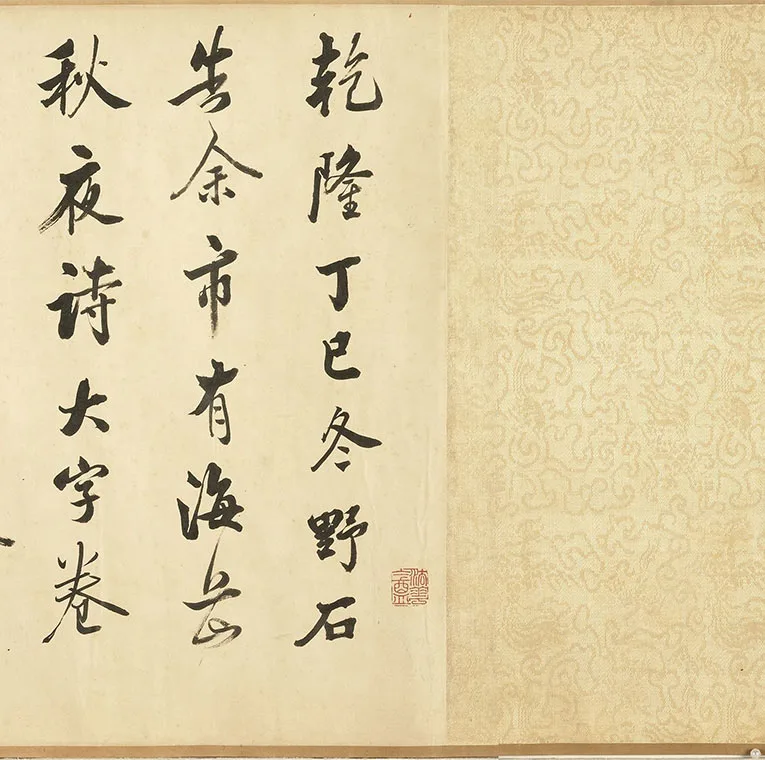 乾隆丁巳冬野石
告余市有海岳
秋夜诗大字卷